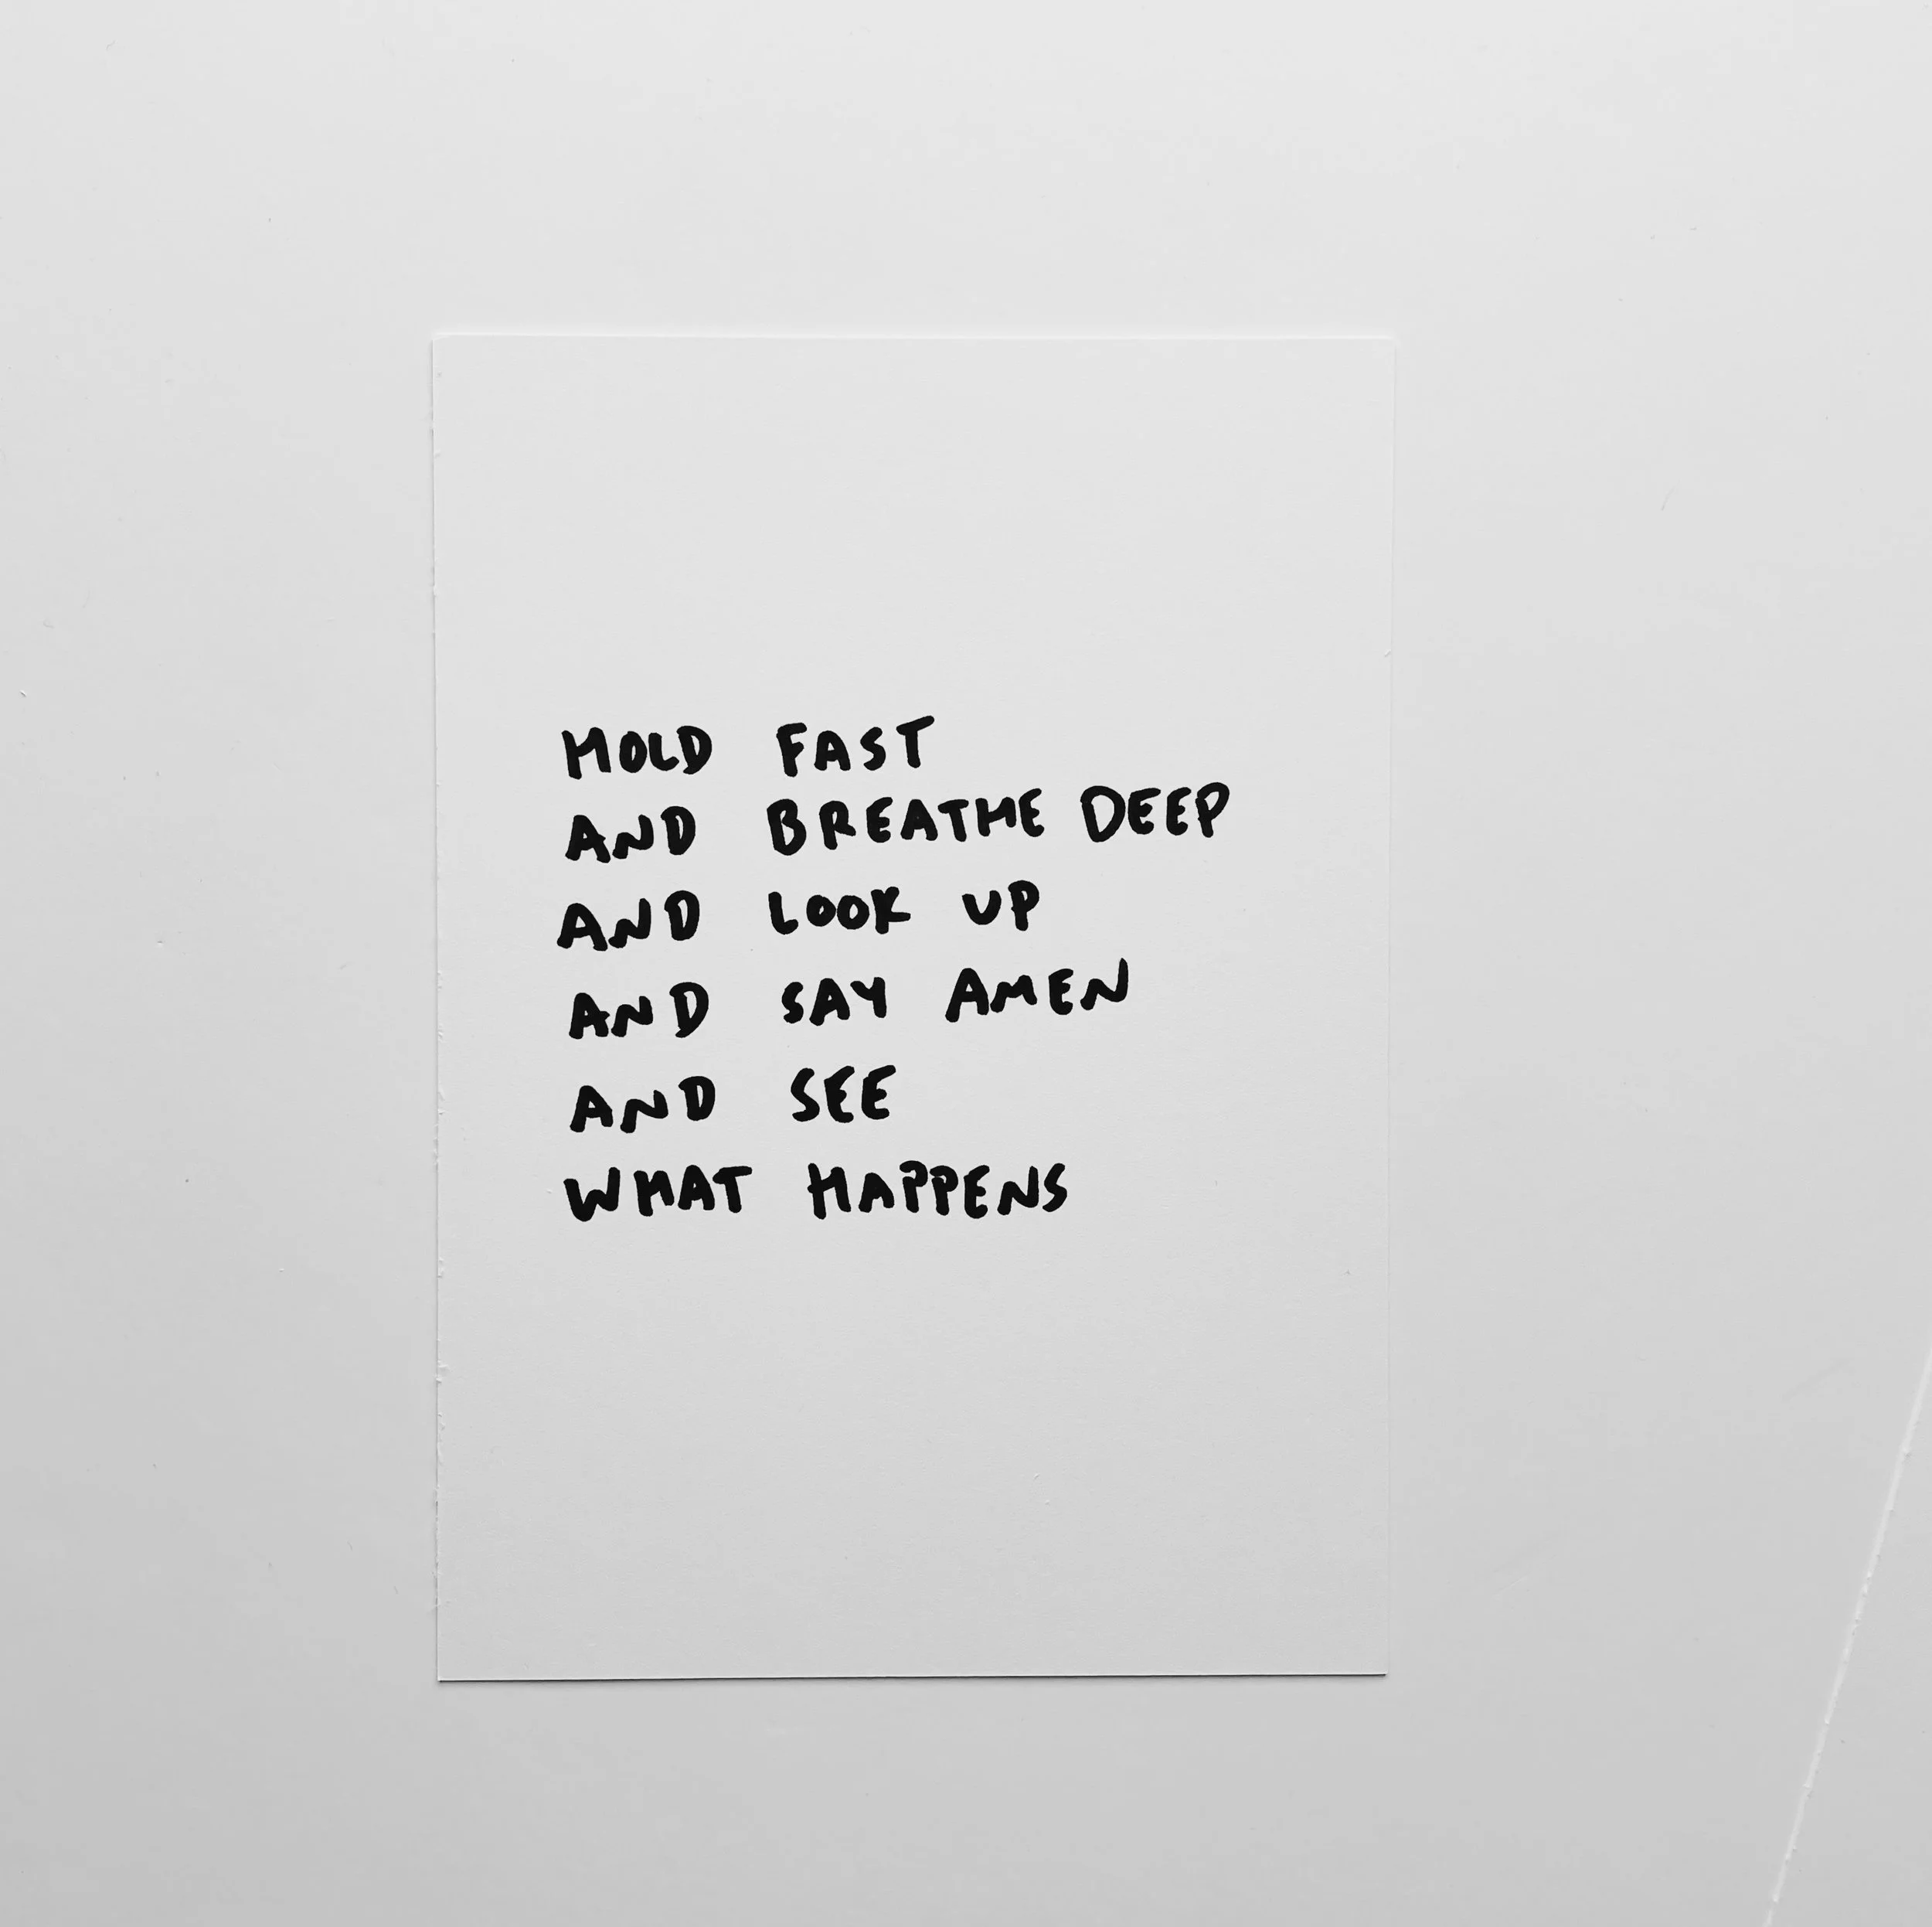 HOLD FAST
AND BREATHE DEEP
AND LOOK UP
AND SAY AMEN
AND SEE
WHAT HAPPENS